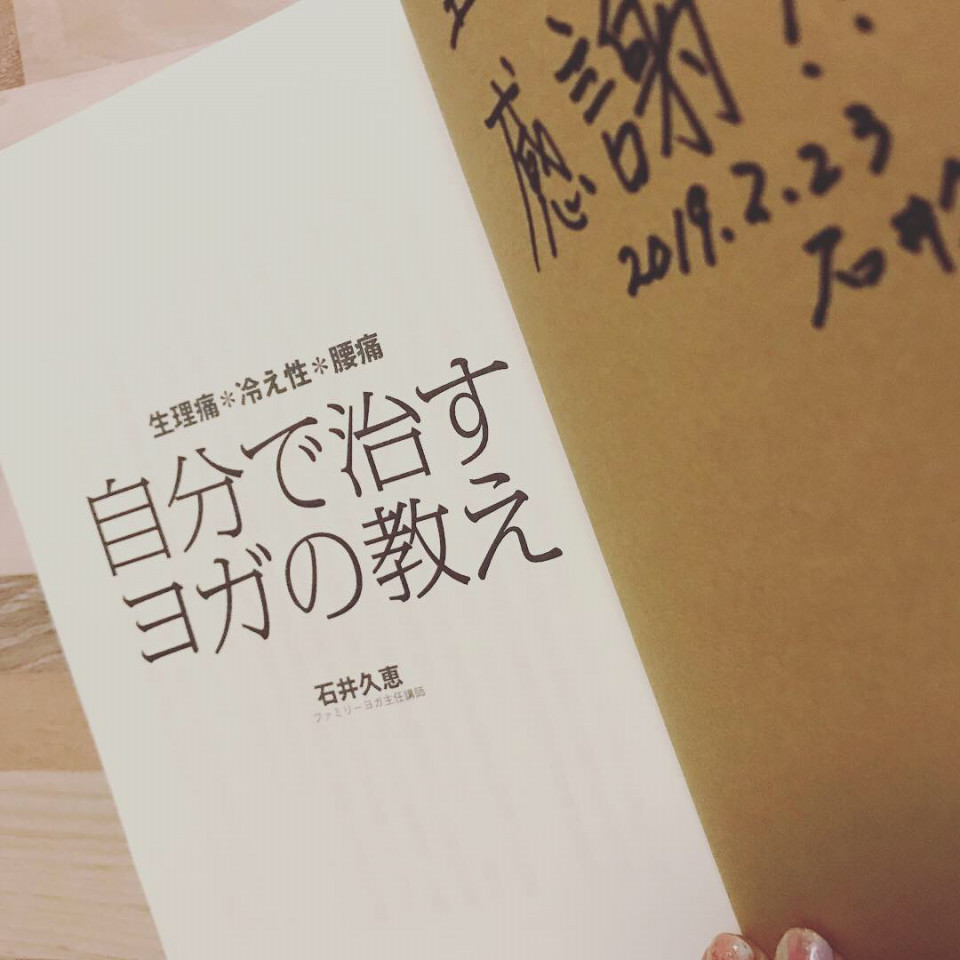 生理痛*冷え性*腰痛
自分で治す
ヨガの教え
石井久恵
ファミリーヨガ主任講師
感謝!
2019.2.23
石井